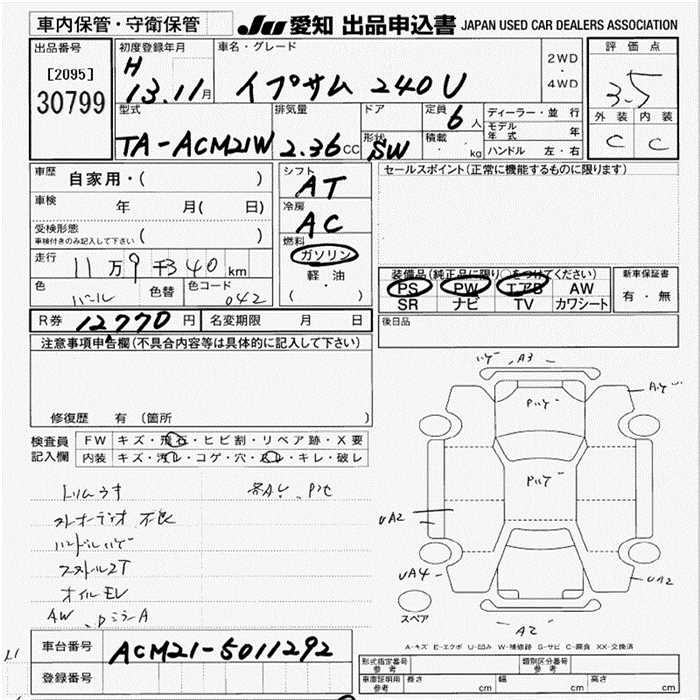 車内保管・守衛保管
JU 愛知 出品申込書 JAPAN USED CAR DEALERS ASSOCIATION
出品番号 初度登録年月 車名・グレード 2WD・4WD 評価点
[2095] 30799 H 13.11月 イプサム 240U 3.5
型式 排気量 ドア 定員 6人 ディーラー・並行 外装 内装
TA-ACM21W 2.36CC 形状 SW 積載 kg モデル年式 年 C C
ハンドル 左・右
車歴 自家用・( ) シフト AT セールスポイント(正常に機能するものに限ります)
車検 年 月( 日) 冷房 AC
受検形態 車検付きのみ記入して下さい ( )
走行 11万9千340km 燃料 ガソリン 軽油 ( ・ )
色 パール 色替 色コード 042
装備品(純正品に限り○をつけてください) 新車保証書
PS PW エアB AW 有・無
SR ナビ TV カワシート
R券 12770円 名変期限 月 日 後日品
注意事項申告欄(不具合内容等は具体的に記入して下さい)
修復歴 有 (箇所
検査員 FW キズ・飛石・ヒビ割・リペア跡・X要
記入欄 内装 キズ・汚レ・コゲ・穴・スレ・キレ・破レ
トリムうす
ステレオ不良
ハンドルハゲ
オイルモレ
AW、ドミラーA
A3
UA2
UA4
UA2
A2
スペア
A-キズ E-エクボ U-凹み W-補修跡 S-サビ C-腐食 XX-交換済
車台番号 ACM21-5011292
登録番号
形式指定番号 参考 類別区分番号 参考
車庫証明用 参考 長さ cm 幅 cm 高さ cm